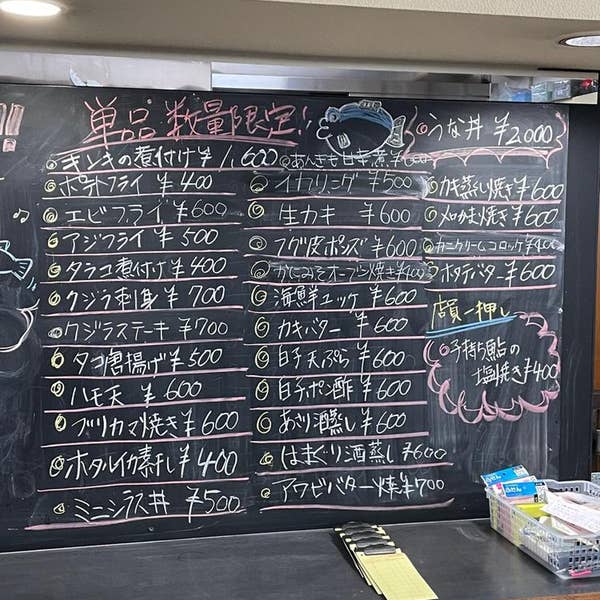 単品 数量限定!!
キンキの煮付け ¥1,600
ポテトフライ ¥400
エビフライ ¥600
アジフライ ¥500
タラコ煮付け ¥400
クジラ刺身 ¥700
クジラステーキ ¥700
タコ唐揚げ ¥500
ハモ天 ¥600
ブリカマ焼き ¥600
ホタルイカ素干し ¥400
ミニシラス丼 ¥500
あんきも甘辛煮 ¥600
イカリング ¥500
生カキ ¥600
フグ皮ポンズ ¥600
かにみそオーブン焼き ¥400
海鮮ユッケ ¥600
カキバター ¥600
白子天ぷら ¥600
白子ポン酢 ¥600
あさり酒蒸し ¥600
はまぐり酒蒸し ¥600
アワビバター焼 ¥700
うな丼 ¥2,000
カキ蒸し焼き ¥600
メカカマ焼き ¥600
カニクリームコロッケ ¥400
ホタテバター ¥600
店員一押し
子持ち鮎の
塩焼き ¥400